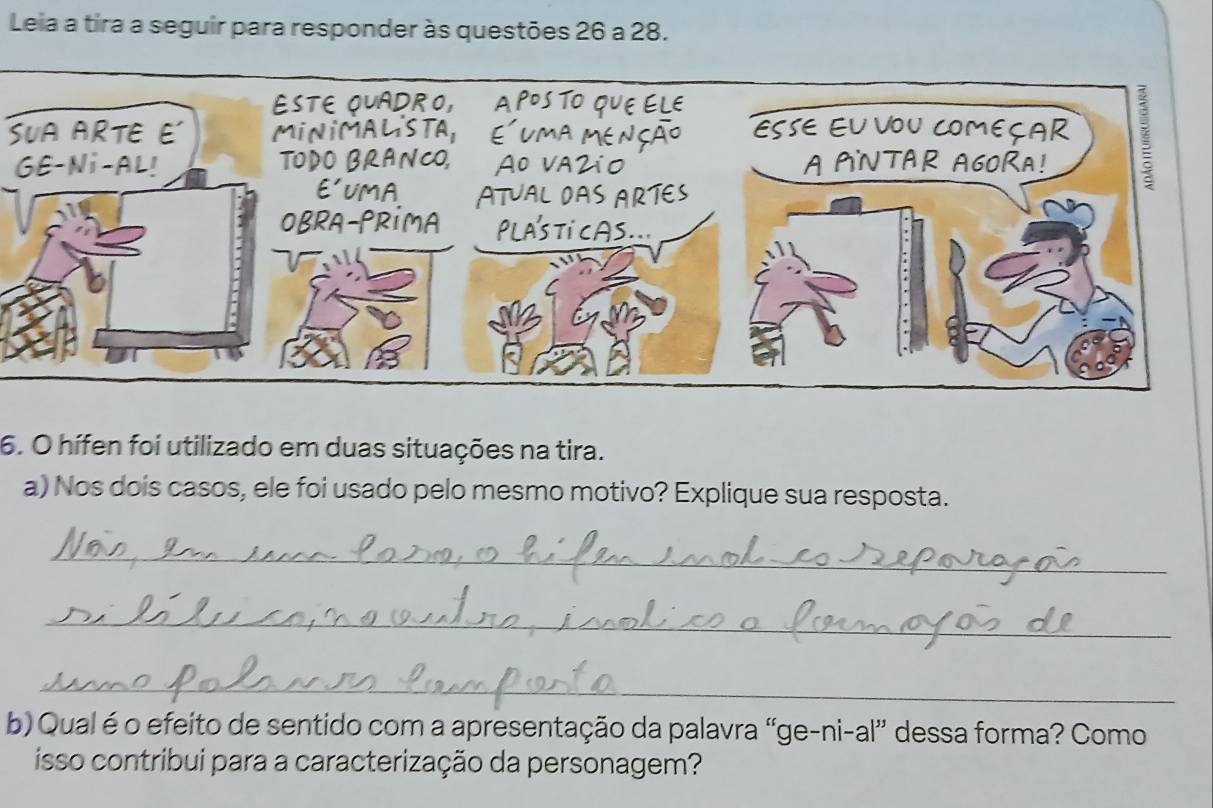 Leia a tira a seguir para responder às questões 26 a 28.
SUA ARTE É
GE-NI-AL!
ESTE QUADRO,
MINIMALISTA,
TODO BRANCO,
É UMA
OBRA-PRIMA
APOSTO QUE ELE
É UMA MENÇÃO
AO VAZIO
ATUAL DAS ARTES
PLÁSTICAS...
ESSE EU VOU COMEÇAR
A PINTAR AGORA!
ADÃO ITURRUSGARAI
6. O hífen foi utilizado em duas situações na tira.
a) Nos dois casos, ele foi usado pelo mesmo motivo? Explique sua resposta.
Não, em um caso, o hifen indica separação
silílica, no outro, indica a formação de
uma palavra composta
b) Qual é o efeito de sentido com a apresentação da palavra “ge-ni-al” dessa forma? Como
isso contribui para a caracterização da personagem?